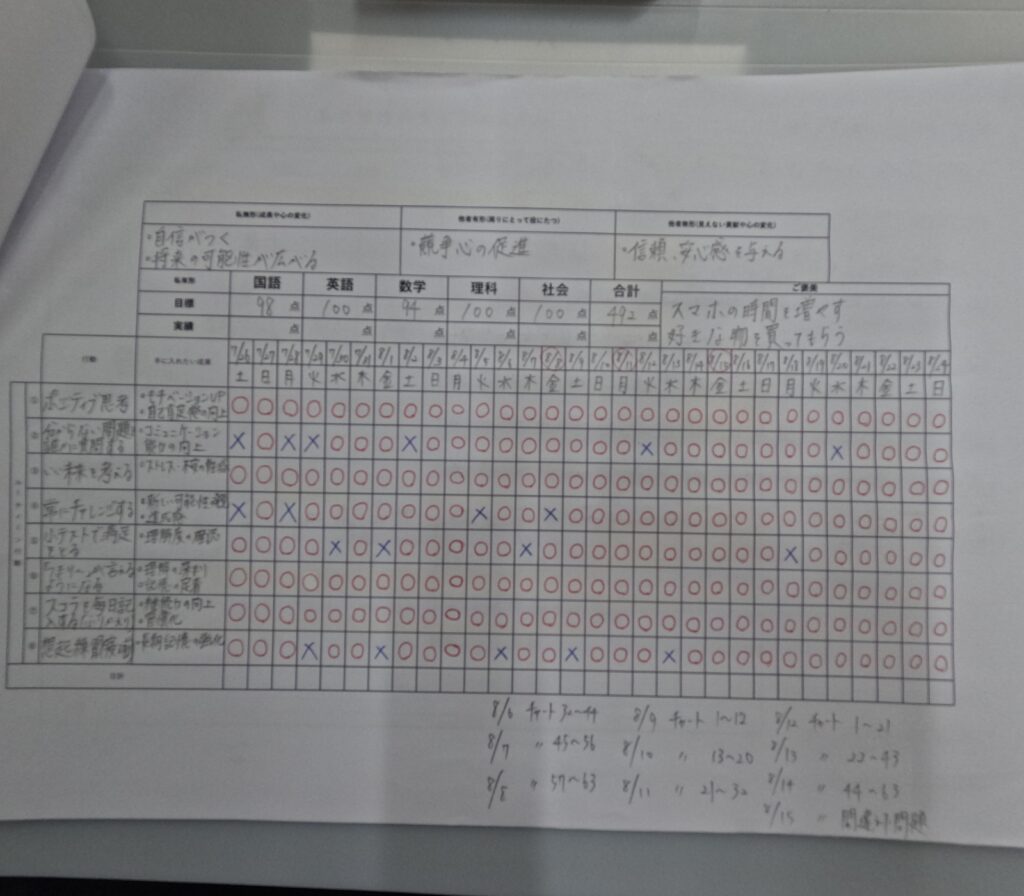 私無形(成長や心の変化) 他者有形(周りにとって役にたつ) 他者無形(見えない貢献や心の変化)
・自信がつく ・競争心の促進 ・信頼、安心感を与える
・将来の可能性が広がる
私有形 国語 英語 数学 理科 社会 合計 ご褒美
目標 98点 100点 94点 100点 100点 492点 スマホの時間を増やす
実績 点 点 点 点 点 点 好きな物を買ってもらう
行動 手に入れたい成果 7/26 7/27 7/28 7/29 7/30 7/31 8/1 8/2 8/3 8/4 8/5 8/6 8/7 8/8 8/9 8/10 8/11 8/12 8/13 8/14 8/15 8/16 8/17 8/18 8/19 8/20 8/21 8/22 8/23 8/24
土 日 月 火 水 木 金 土 日 月 火 水 木 金 土 日 月 火 水 木 金 土 日 月 火 水 木 金 土 日
① ポジティブ思考 ・モチベーションUP
・自己肯定感の向上
② 分からない問題を ・コミュニケーション
誰かに質問する 能力の向上
③ いい未来を考える
④ 常にチャレンジする
・達成感
⑤ 小テストで満点 ・理解度の確認
をとる
⑥ ・理解の深まり
ようになる ・記憶の定着
⑦ スコラを毎日記
・習慣化
⑧ 想起練習 ・長期記憶の強化
合計
8/6 チャート 32~44 8/9 チャート 1~12 8/12 チャート 1~21
8/7 〃 45~56 8/10 〃 13~20 8/13 〃 22~43
8/8 〃 57~63 8/11 〃 21~32 8/14 〃 44~63
8/15 〃 間違えた問題